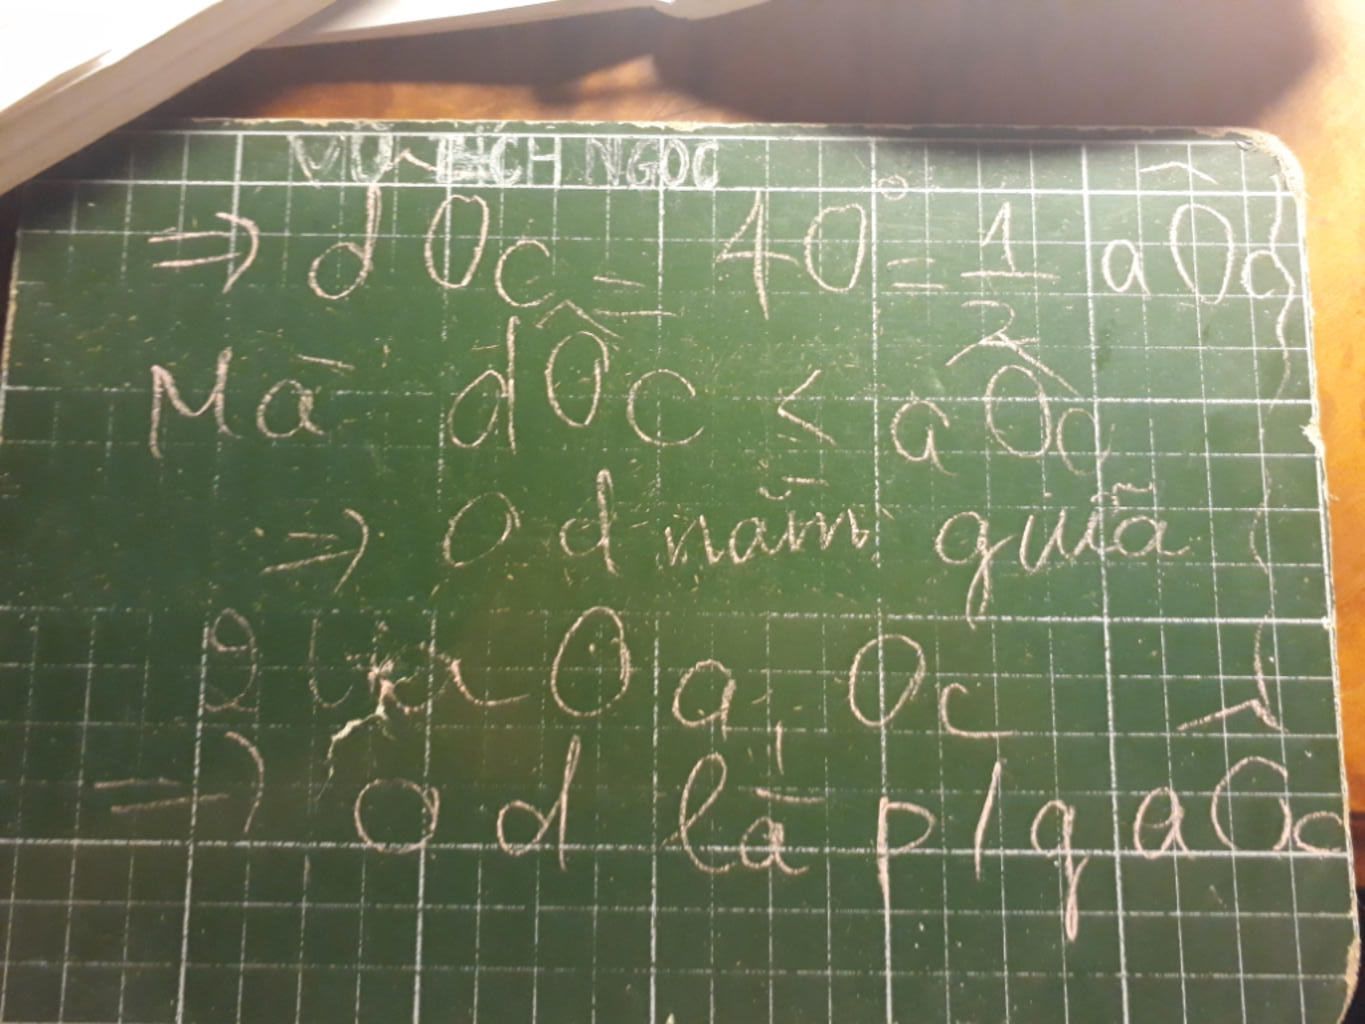 VŨ BÍCH NGỌC
=> dOc = 40° = 1/2 aÔc
Mà dÔc < aÔc
=> Od nằm giữa
2 tia Oa, Oc
=> Od là p/g aÔc